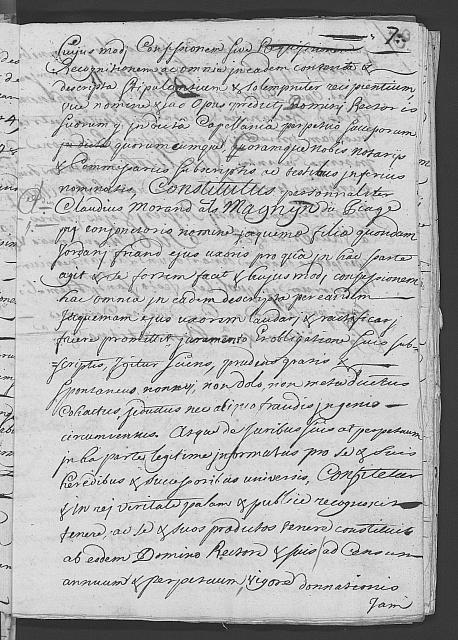 73
Cujus modi Confessionem sive
Recognitionem ac omnia in eadem contenta &
descripta Stipulantium & solempniter recipientium
vice nomine & ad opus predicti Domini Rectoris
suorumq in dicta Capellania perpetuo successorum
quorumcumque, quoramque nobis notariis
& Commissariis subscriptis ac testibus inferius
nominatis, Constitutus personnaliter
Claudius Morand als Magnyn du
conjonctorio nomine Jaqueme filia quondam
Jordani friand ejus uxoris pro qua in hac parte
agit & se fortem facit & hujus modi confessionem
hac omnia in eadem descripta per eandem
Jaquemam ejus uxorem laudari & ratificari
facere promittit juramento & obligatione suis sub-
scriptis, Igitur sciens, prudens gratis &
spontaneus non vi, non dolo, non metu ductus
Cohactus, seductus nec aliquo fraudis ingenio
circumventus. Atque de Juribus suis ad perpetuum
in hac parte legitime informatus pro se & suis
heredibus & successoribus universis, Confitetur
& in rei veritate palam & publice recognoscit
tenere, ac se & suos predictos tenere constituit
ab eodem Domino Rectore & suis ad Censum
annuum & perpetuum, vigore donnationis
Jam